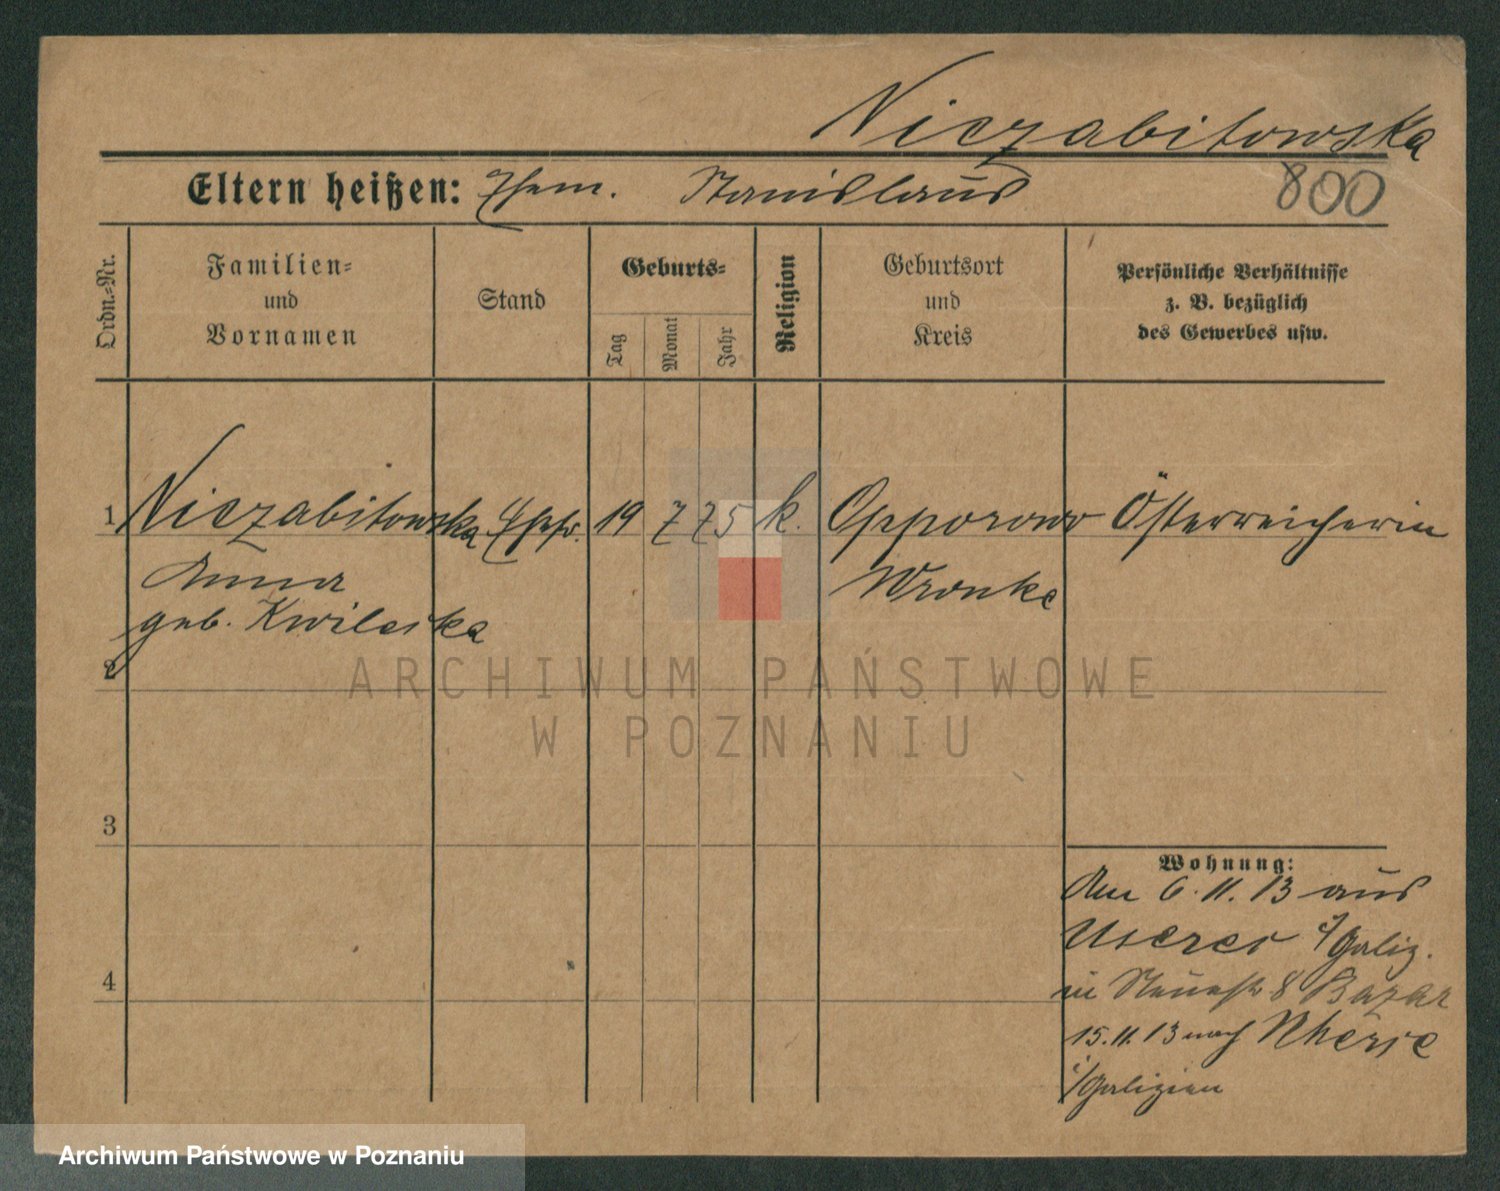 Niezabitowska
Eltern heißen: Ehem. Stanislaus
800
Ordn.-Nr.
Familien-
und
Vornamen
Stand
Geburts-
Tag
Monat
Jahr
Religion
Geburtsort
und
Kreis
Persönliche Verhältnisse
z. B. bezüglich
des Gewerbes usw.
1 Niezabitowska Ehefr. 19 7 75 k. Opporowo Österreicherin
Anna Wronke
geb. Kwilecka
2
3
4
Wohnung:
Am 6.11.13 aus
i/Galiz.
in 8 Bazar
15.11.13 nach
i/Galizien
ARCHIWUM PAŃSTWOWE
W POZNANIU
Archiwum Państwowe w Poznaniu